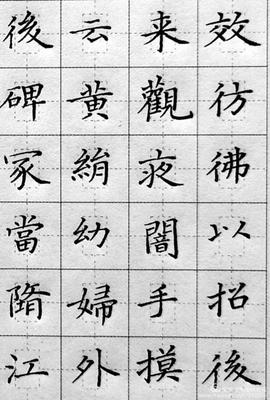 效彷彿以招後
来觀夜闇手摸
云黄絹幼婦外
後碑冢當隋江